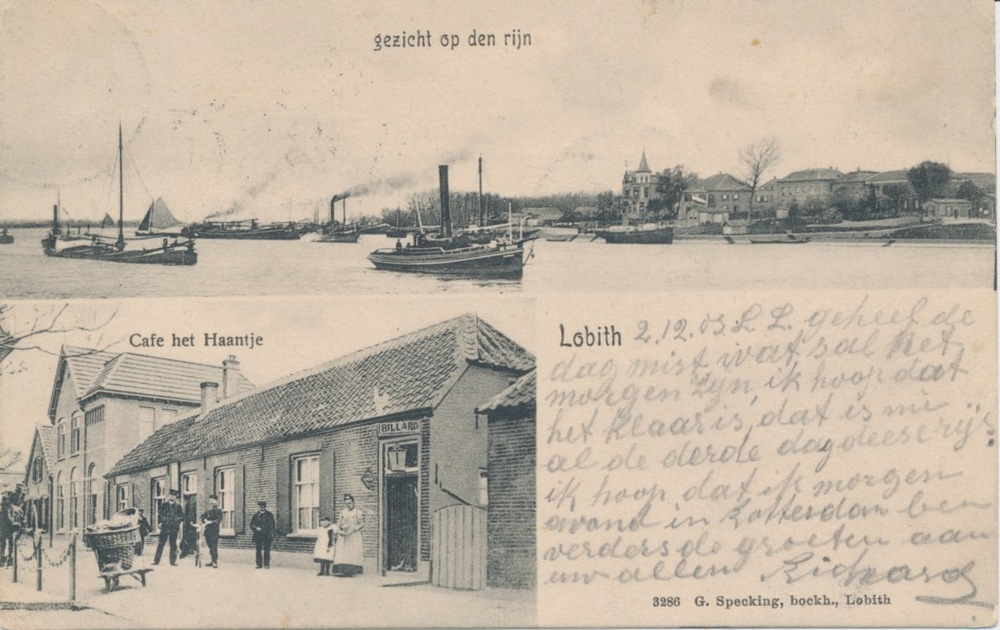 gezicht op den rijn
Cafe het Haantje
BILLARD
Lobith 2.12.03. L. L. geheel de
dag mist wat sal het
morgen zyn ik hoop dat
het klaar is, dat is nu
al de derde dag deese rijs
ik hoop dat ik morgen
avond in Rotterdam ben
verders de groeten aan
uw allen Richard
3286 G. Specking, bockh., Lobith